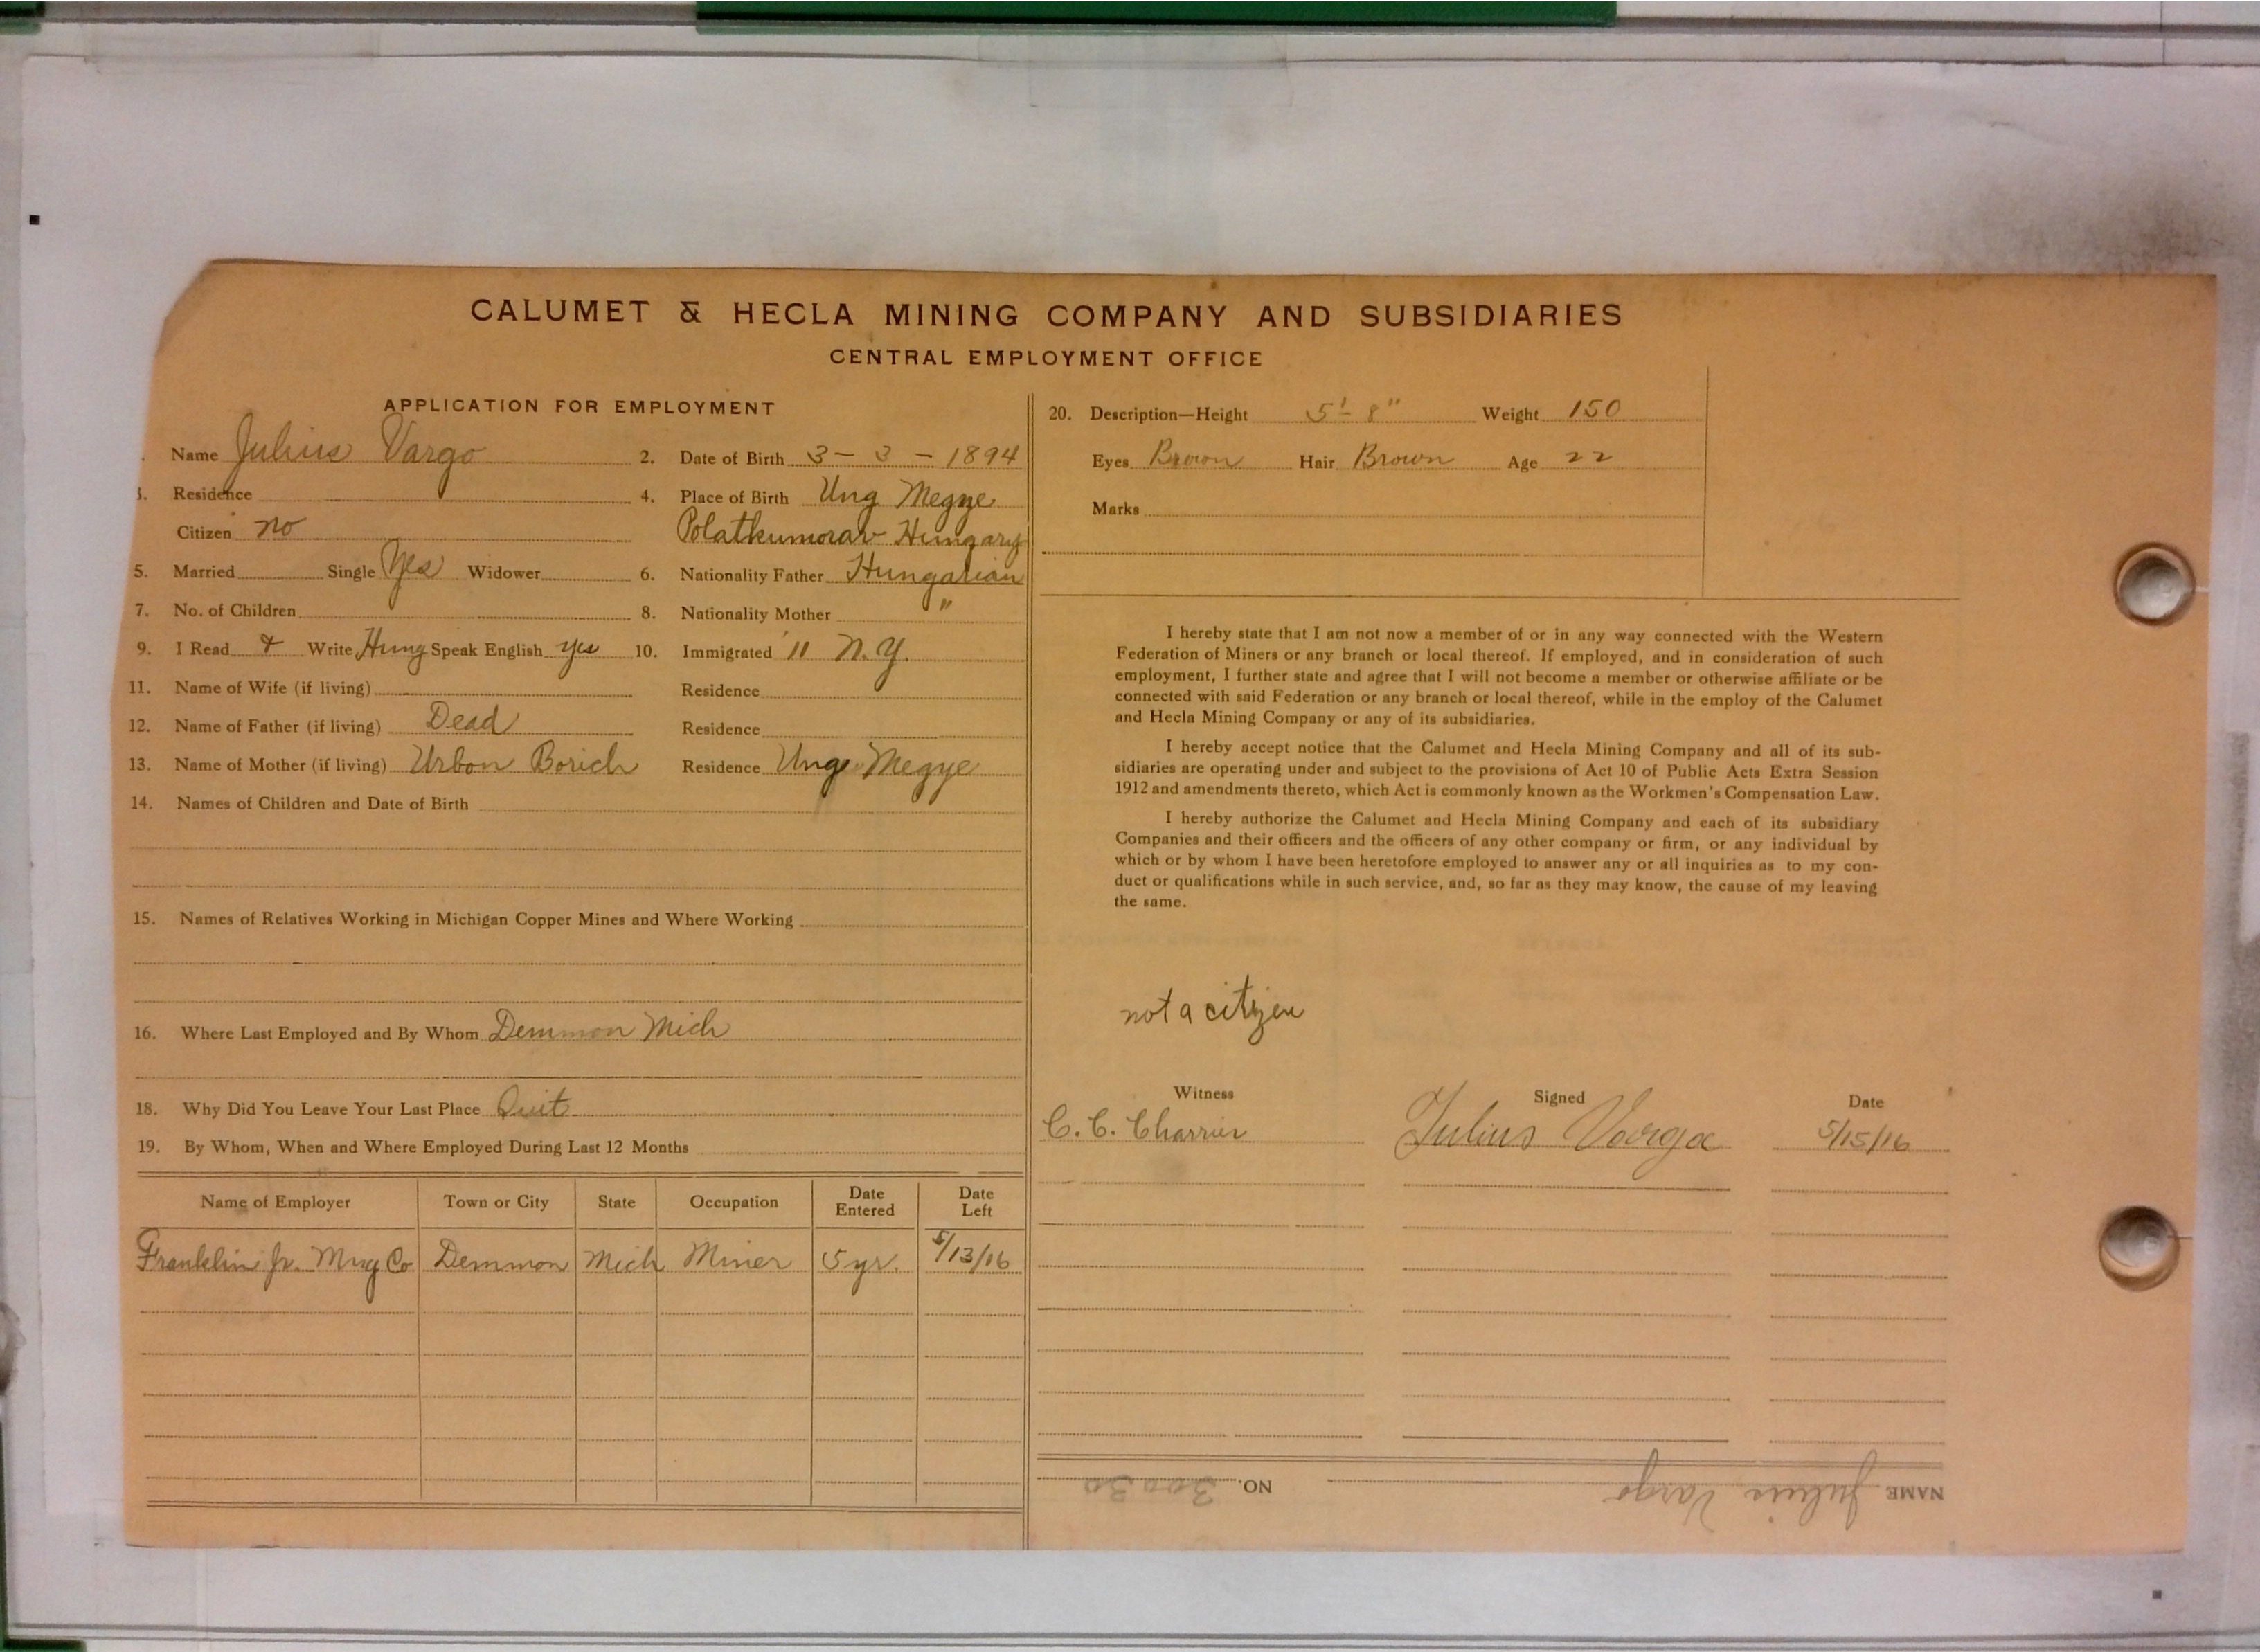 CALUMET & HECLA MINING COMPANY AND SUBSIDIARIES
CENTRAL EMPLOYMENT OFFICE
APPLICATION FOR EMPLOYMENT
Name Julius Vargo 2. Date of Birth 3-3-1894
3. Residence 4. Place of Birth Ung Megye
Citizen no Polatkumorav Hungary
5. Married Single Yes Widower 6. Nationality Father Hungarian
7. No. of Children 8. Nationality Mother "
9. I Read & Write Hung Speak English yes 10. Immigrated '11 N.Y.
11. Name of Wife (if living) Residence
12. Name of Father (if living) Dead Residence
13. Name of Mother (if living) Urbon Borich Residence Ung Megye
14. Names of Children and Date of Birth
15. Names of Relatives Working in Michigan Copper Mines and Where Working
16. Where Last Employed and By Whom Demmon Mich
18. Why Did You Leave Your Last Place Quit
19. By Whom, When and Where Employed During Last 12 Months
Name of Employer Town or City State Occupation Date Entered Date Left
Franklin Jr. Mng Co Demmon Mich Miner 5 yr. 5/13/16
20. Description—Height 5'-8" Weight 150
Eyes Brown Hair Brown Age 22
Marks
I hereby state that I am not now a member of or in any way connected with the Western
Federation of Miners or any branch or local thereof. If employed, and in consideration of such
employment, I further state and agree that I will not become a member or otherwise affiliate or be
connected with said Federation or any branch or local thereof, while in the employ of the Calumet
and Hecla Mining Company or any of its subsidiaries.
I hereby accept notice that the Calumet and Hecla Mining Company and all of its sub-
sidiaries are operating under and subject to the provisions of Act 10 of Public Acts Extra Session
1912 and amendments thereto, which Act is commonly known as the Workmen's Compensation Law.
I hereby authorize the Calumet and Hecla Mining Company and each of its subsidiary
Companies and their officers and the officers of any other company or firm, or any individual by
which or by whom I have been heretofore employed to answer any or all inquiries as to my con-
duct or qualifications while in such service, and, so far as they may know, the cause of my leaving
the same.
not a citizen
Witness Signed Date
C. C. Charrier Julius Vargo 5/15/16
NAME Julius Vargo NO. 30030